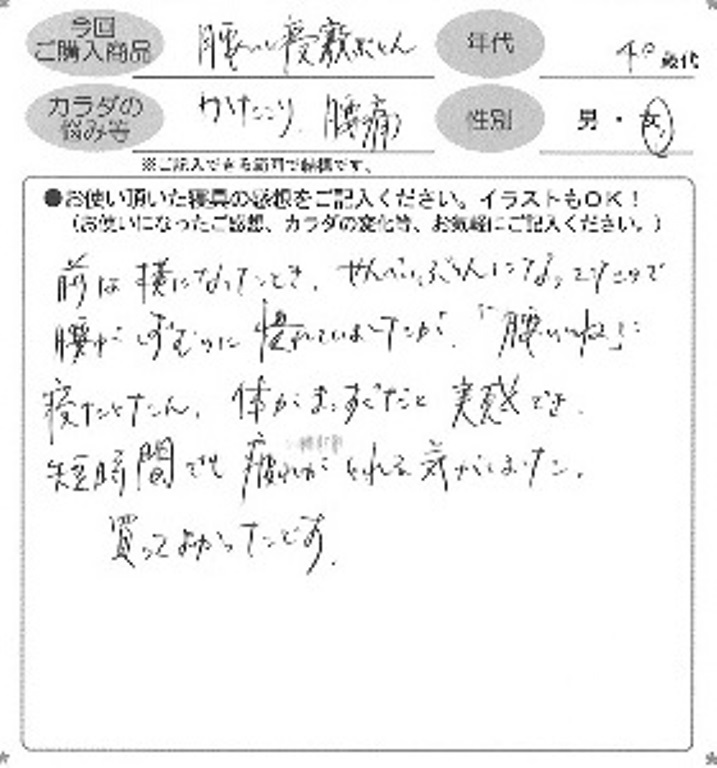 今回
ご購入商品
腰いい寝敷ふとん
年代
40歳代
カラダの
悩み等
かたこり、腰痛
性別
男・女
※ご記入できる範囲で結構です。
●お使い頂いた寝具の感想をご記入ください。イラストもOK！
（お使いになったご感想、カラダの変化等、お気軽にご記入ください。）
前は横になったとき、せんべいぶとんになっていたので
腰がしずむのに慣れていましたが、「腰いいね」に
寝たとたん、体がまっすぐだと実感でき、
短時間でも疲れがとれる気がしました。
買ってよかったです。